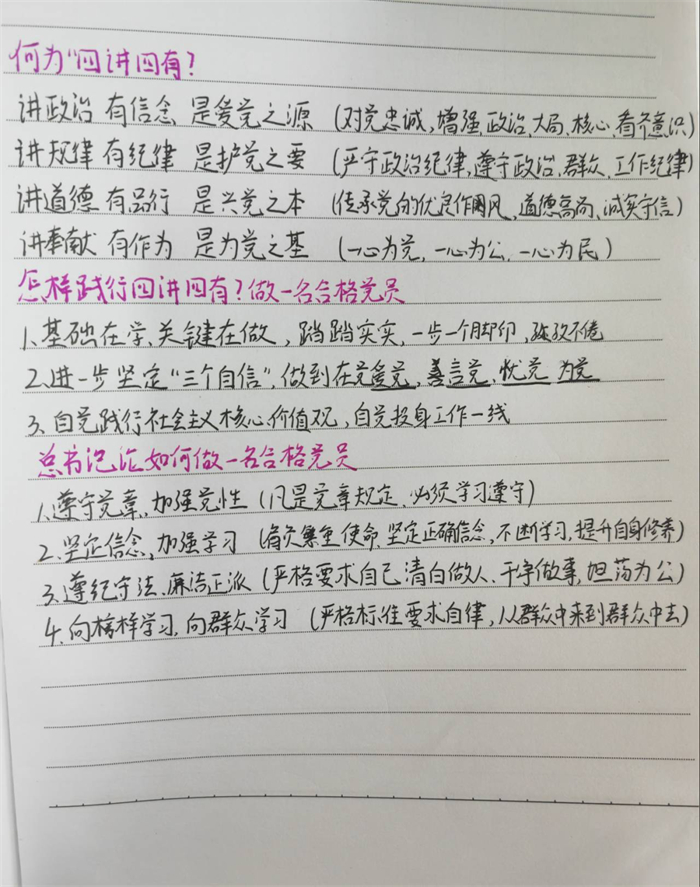 何为"四讲四有?
讲政治 有信念 是爱党之源 (对党忠诚,增强政治、大局、核心、看齐意识)
讲规律 有纪律 是护党之要 (严守政治纪律,遵守政治、群众、工作纪律)
讲道德 有品行 是兴党之本 (传承党的优良作风、道德高尚、诚实守信)
讲奉献 有作为 是为党之基 (一心为党,一心为公,一心为民)
怎样践行四讲四有?做一名合格党员
1、基础在学、关键在做,踏踏实实,一步一个脚印,孜孜不倦
2、进一步坚定"三个自信",做到在党爱党,善言党,忧党 为党
3、自觉践行社会主义核心价值观,自觉投身工作一线
总书记论如何做一名合格党员
1、遵守党章,加强党性 (凡是党章规定、必须学习遵守)
2、坚定信念,加强学习 (肩负集重使命、坚定正确信念,不断学习,提升自身修养)
3、遵纪守法、廉洁正派 (严格要求自己清白做人、干净做事,坦荡为公)
4、向榜样学习,向群众学习 (严格标准要求自律,从群众中来到群众中去)